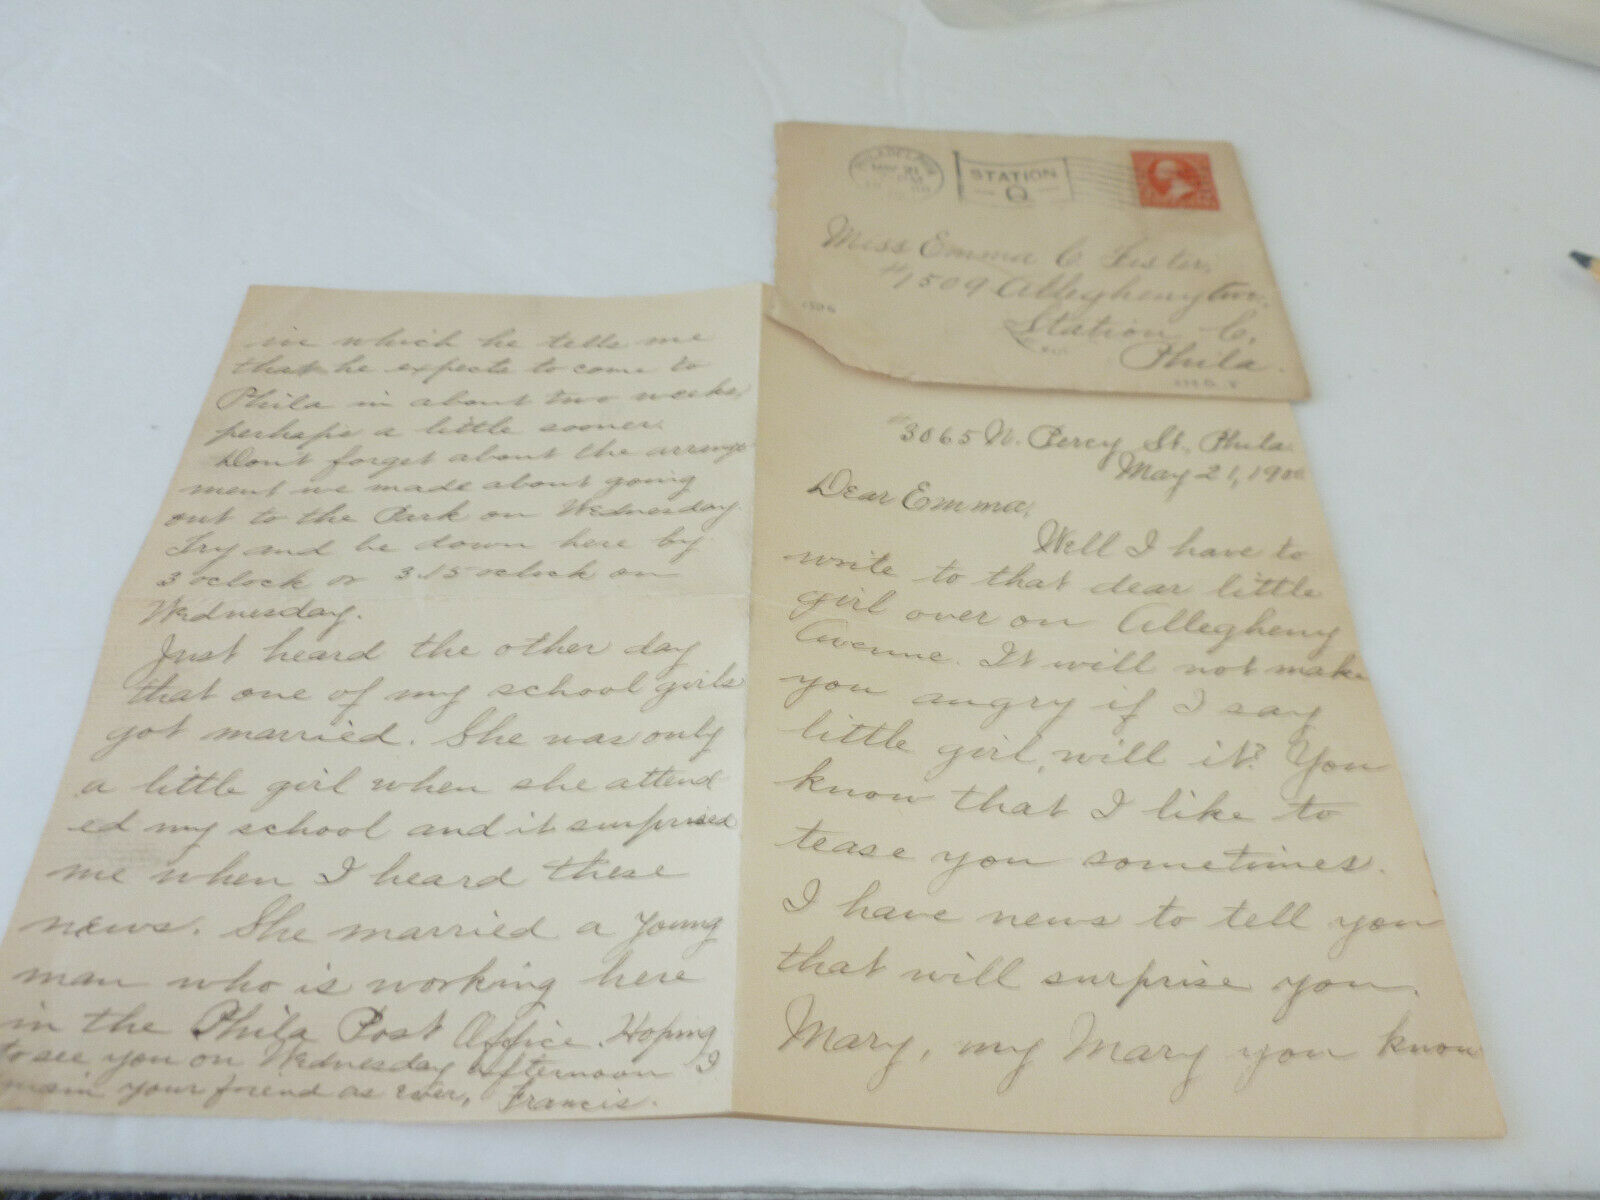 PHILADELPHIA
MAY 21
STATION
Q
Miss Emma C. Fister,
#1509 Allegheny Ave.
Station C,
Phila.
#3065 N. Percy St., Phila.
May 21, 1900
Dear Emma,
Well I have to
write to that dear little
girl over on Allegheny
Avenue. It will not make
you angry if I say
little girl, will it? You
know that I like to
tease you sometimes.
I have news to tell you
that will surprise you.
Mary, my Mary you know
in which he tells me
that he expects to come to
Phila in about two weeks,
perhaps a little sooner.
Dont forget about the arrange
ment we made about going
out to the Park on Wednesday.
Try and be down here by
3 oclock or 3.15 oclock on
Wednesday.
Just heard the other day
that one of my school girls
got married. She was only
a little girl when she attend
ed my school and it surprised
me when I heard these
news. She married a young
man who is working here
in the Phila Post Office. Hoping
to see you on Wednesday afternoon I
main your friend as ever, Francis.